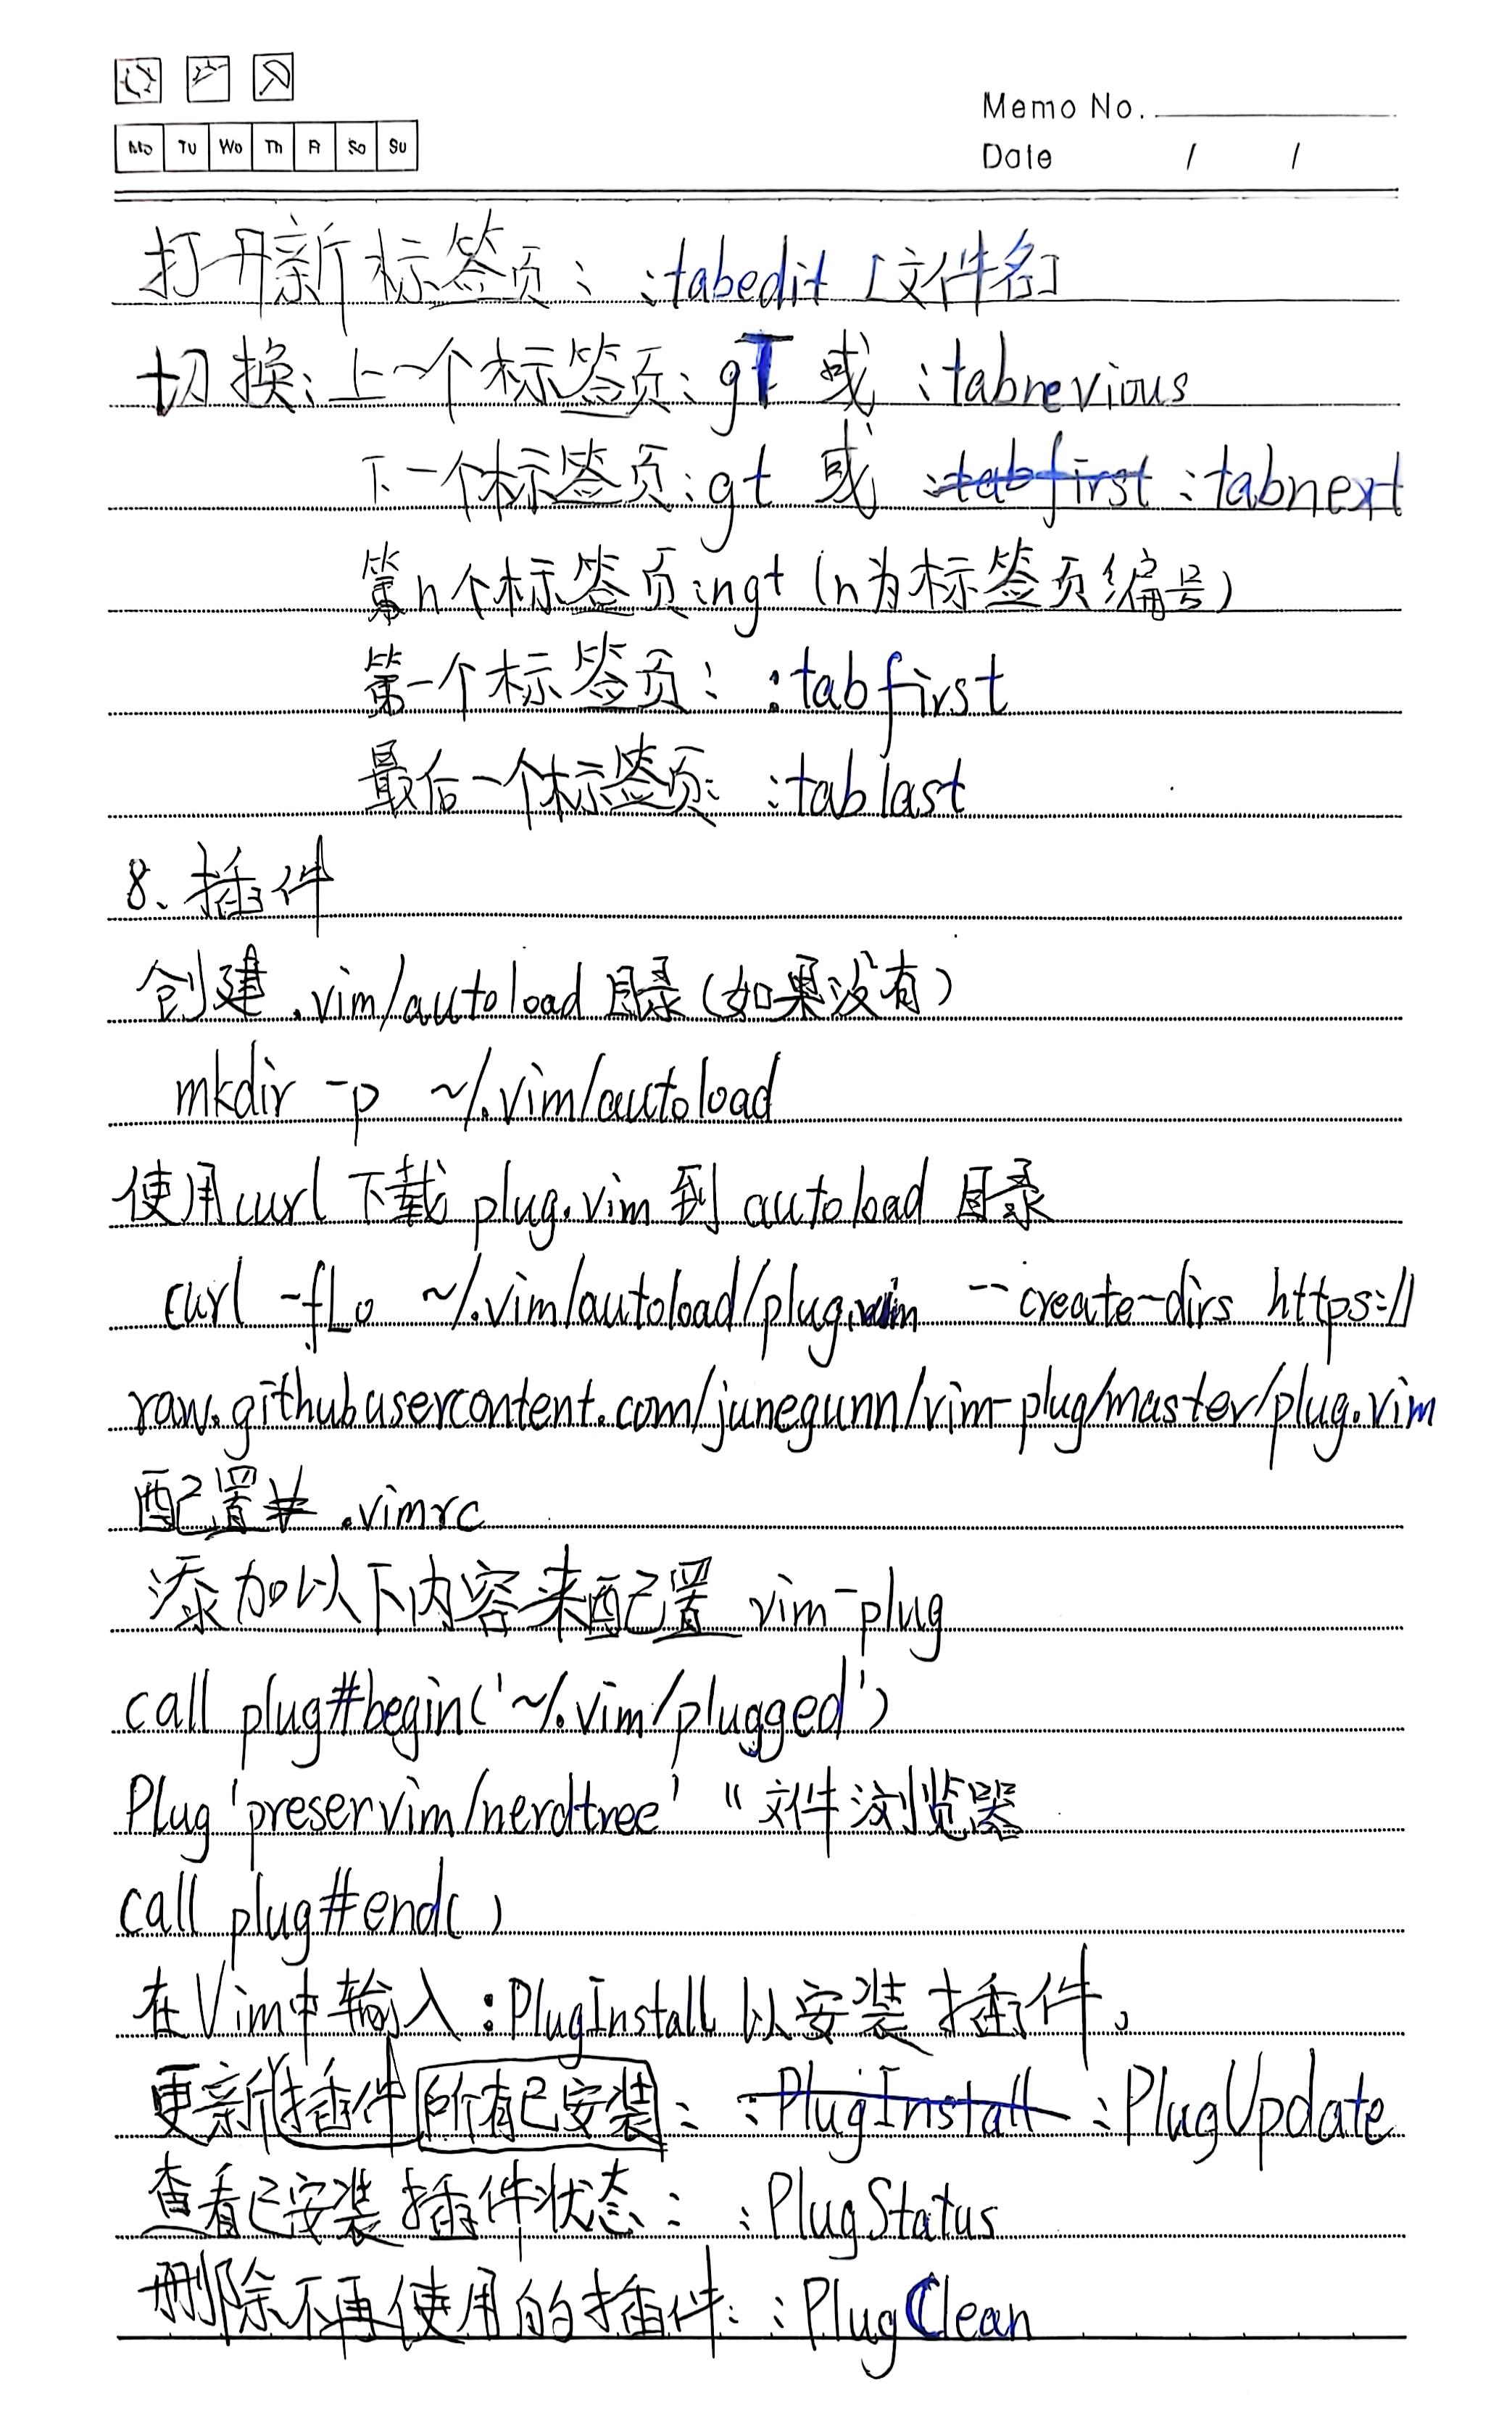 Mo Tu We Th Fr Sa Su
Memo No.
Date / /
打开新标签页：:tabedit [文件名]
切换：上一个标签页：gT 或 :tabrevious
下一个标签页：gt 或 :tabfirst :tabnext
第n个标签页：ngt (n为标签页编号)
第一个标签页：:tabfirst
最后一个标签页：:tablast
8、插件
创建 .vim/autoload 目录(如果没有)
mkdir -p ~/.vim/autoload
使用curl下载 plug.vim 到 autoload 目录
curl -fLo ~/.vim/autoload/plug.vim --create-dirs https://
raw.githubusercontent.com/junegunn/vim-plug/master/plug.vim
配置 .vimrc
添加以下内容来配置 vim-plug
call plug#begin('~/.vim/plugged')
Plug 'preservim/nerdtree' "文件浏览器
call plug#end()
在Vim中输入 :PlugInstall 以安装插件。
更新插件所有已安装：:PlugInstall :PlugUpdate
查看已安装插件状态：:PlugStatus
删除不再使用的插件：:PlugClean